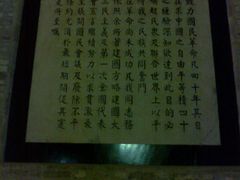 致力國民革命凡四十年其目
在求中國之自由平等積四十
之經驗深知欲達到此目的必
喚起民眾及聯合世界上以平
我之民族共同奮鬥
在革命尚未成功凡我同志務
依照余所著建國方略建國大
三民主義及第一次全國代表
會宣言繼續努力以求貫澈最
開國民會議及廢除不平
約尤須於最短期間促其實
是所至囑